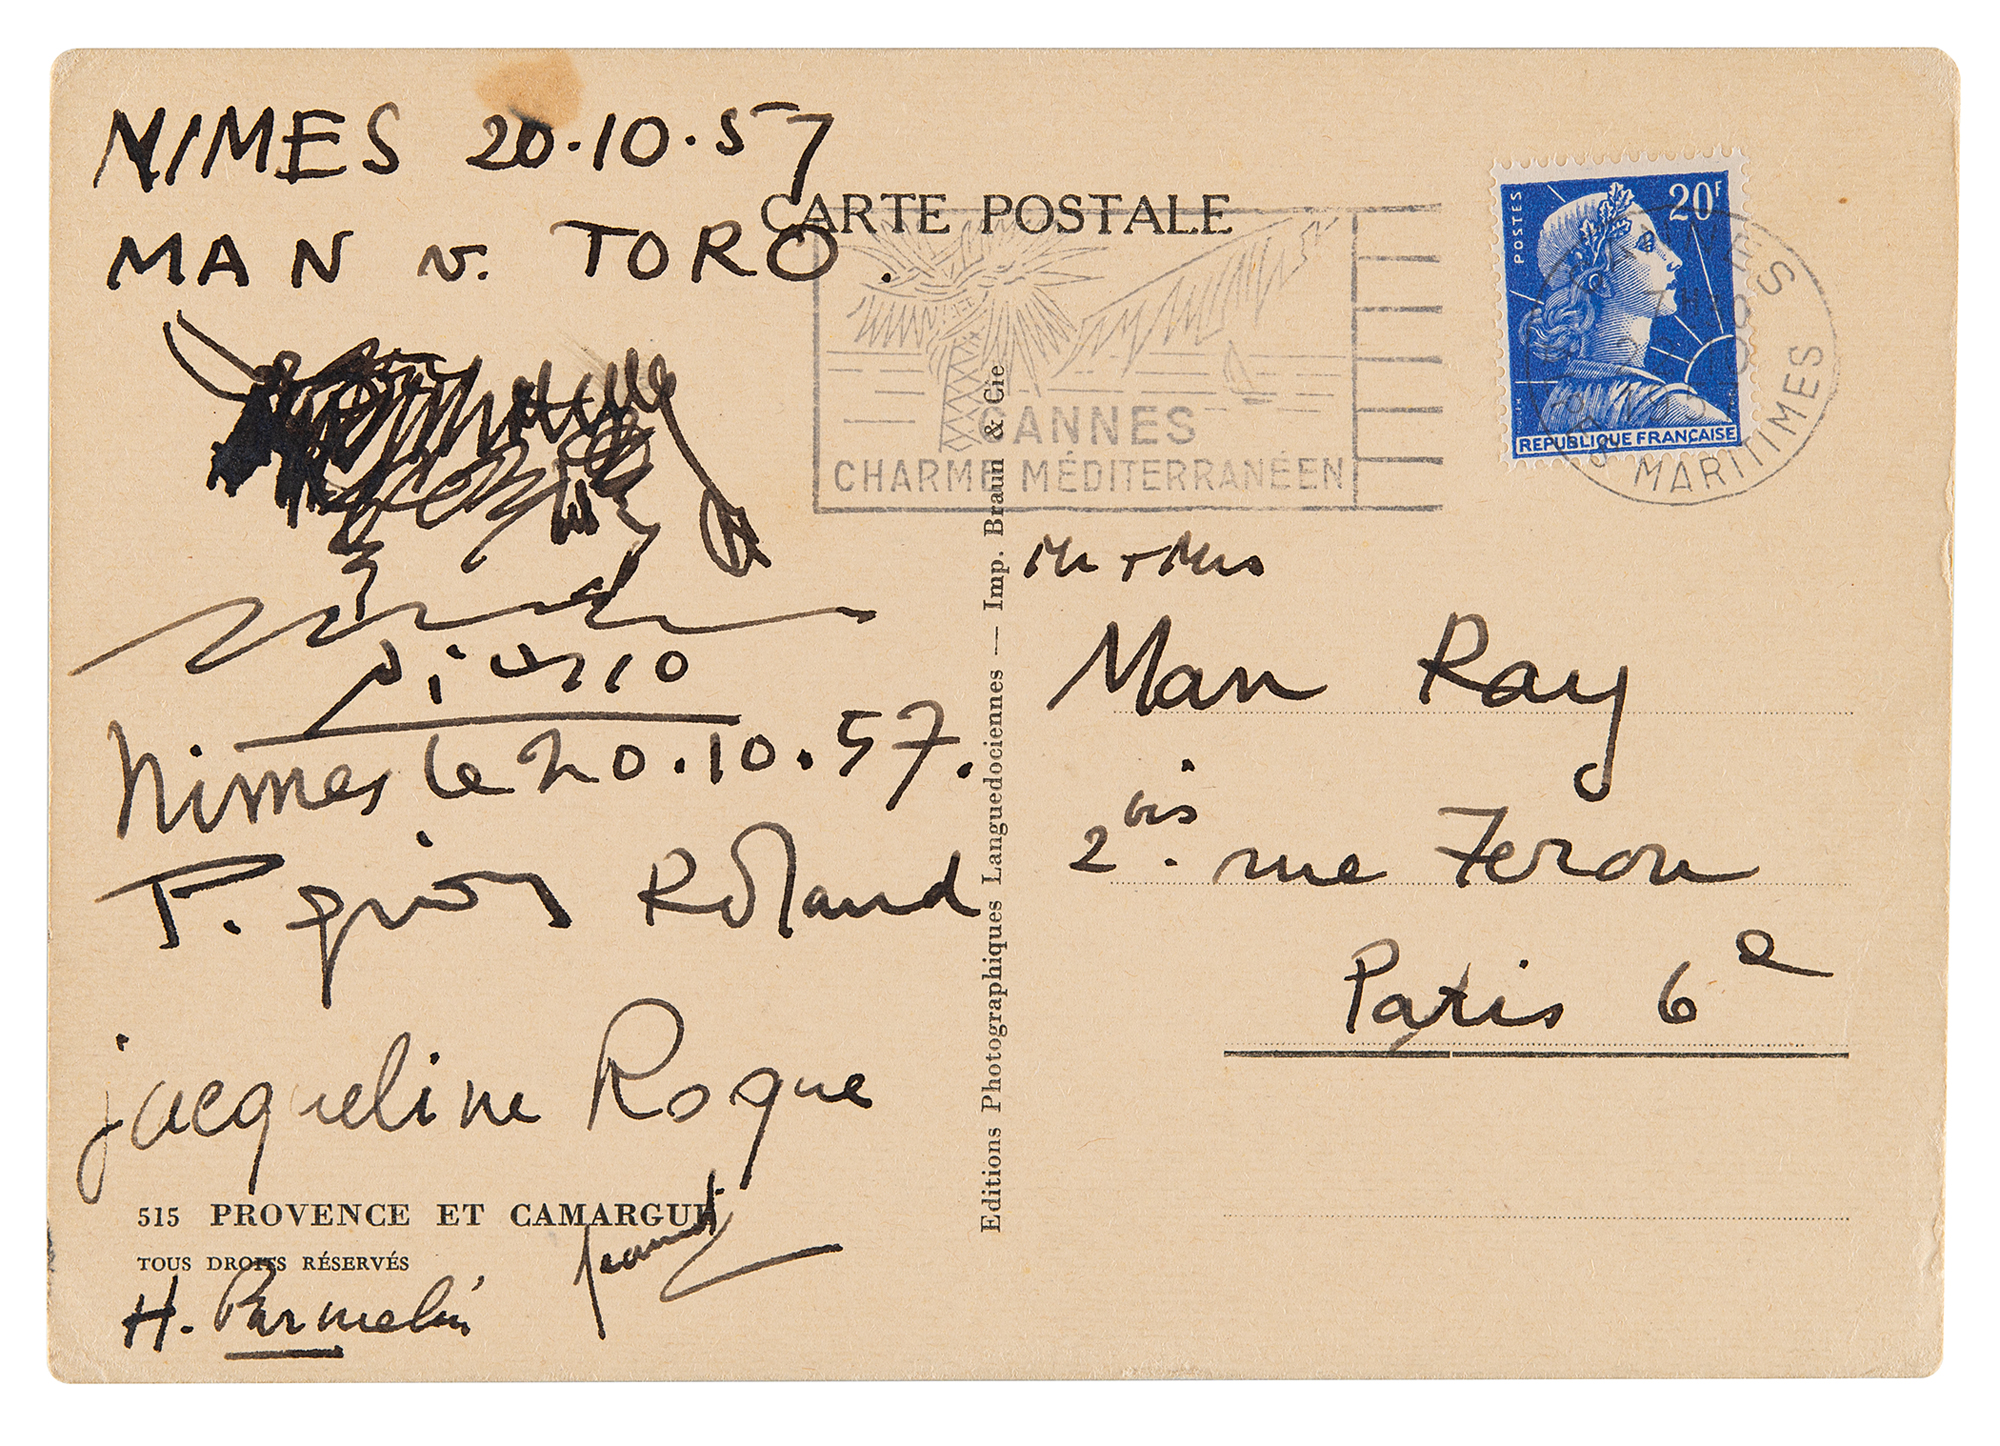 NIMES 20.10.57
MAN v. TORO.
Picasso
Nimes le 20.10.57.
Roland
Jacqueline Roque
515 PROVENCE ET CAMARGUE
TOUS DROITS RÉSERVÉS
H. Parmelin
CARTE POSTALE
CANNES
CHARME MÉDITERRANÉEN
Editions Photographiques Languedociennes — Imp. Braun & Cie
POSTES
20F
REPUBLIQUE FRANÇAISE
MARITIMES
Mr + Mrs
Man Ray
2 bis. rue Feron
Paris 6e